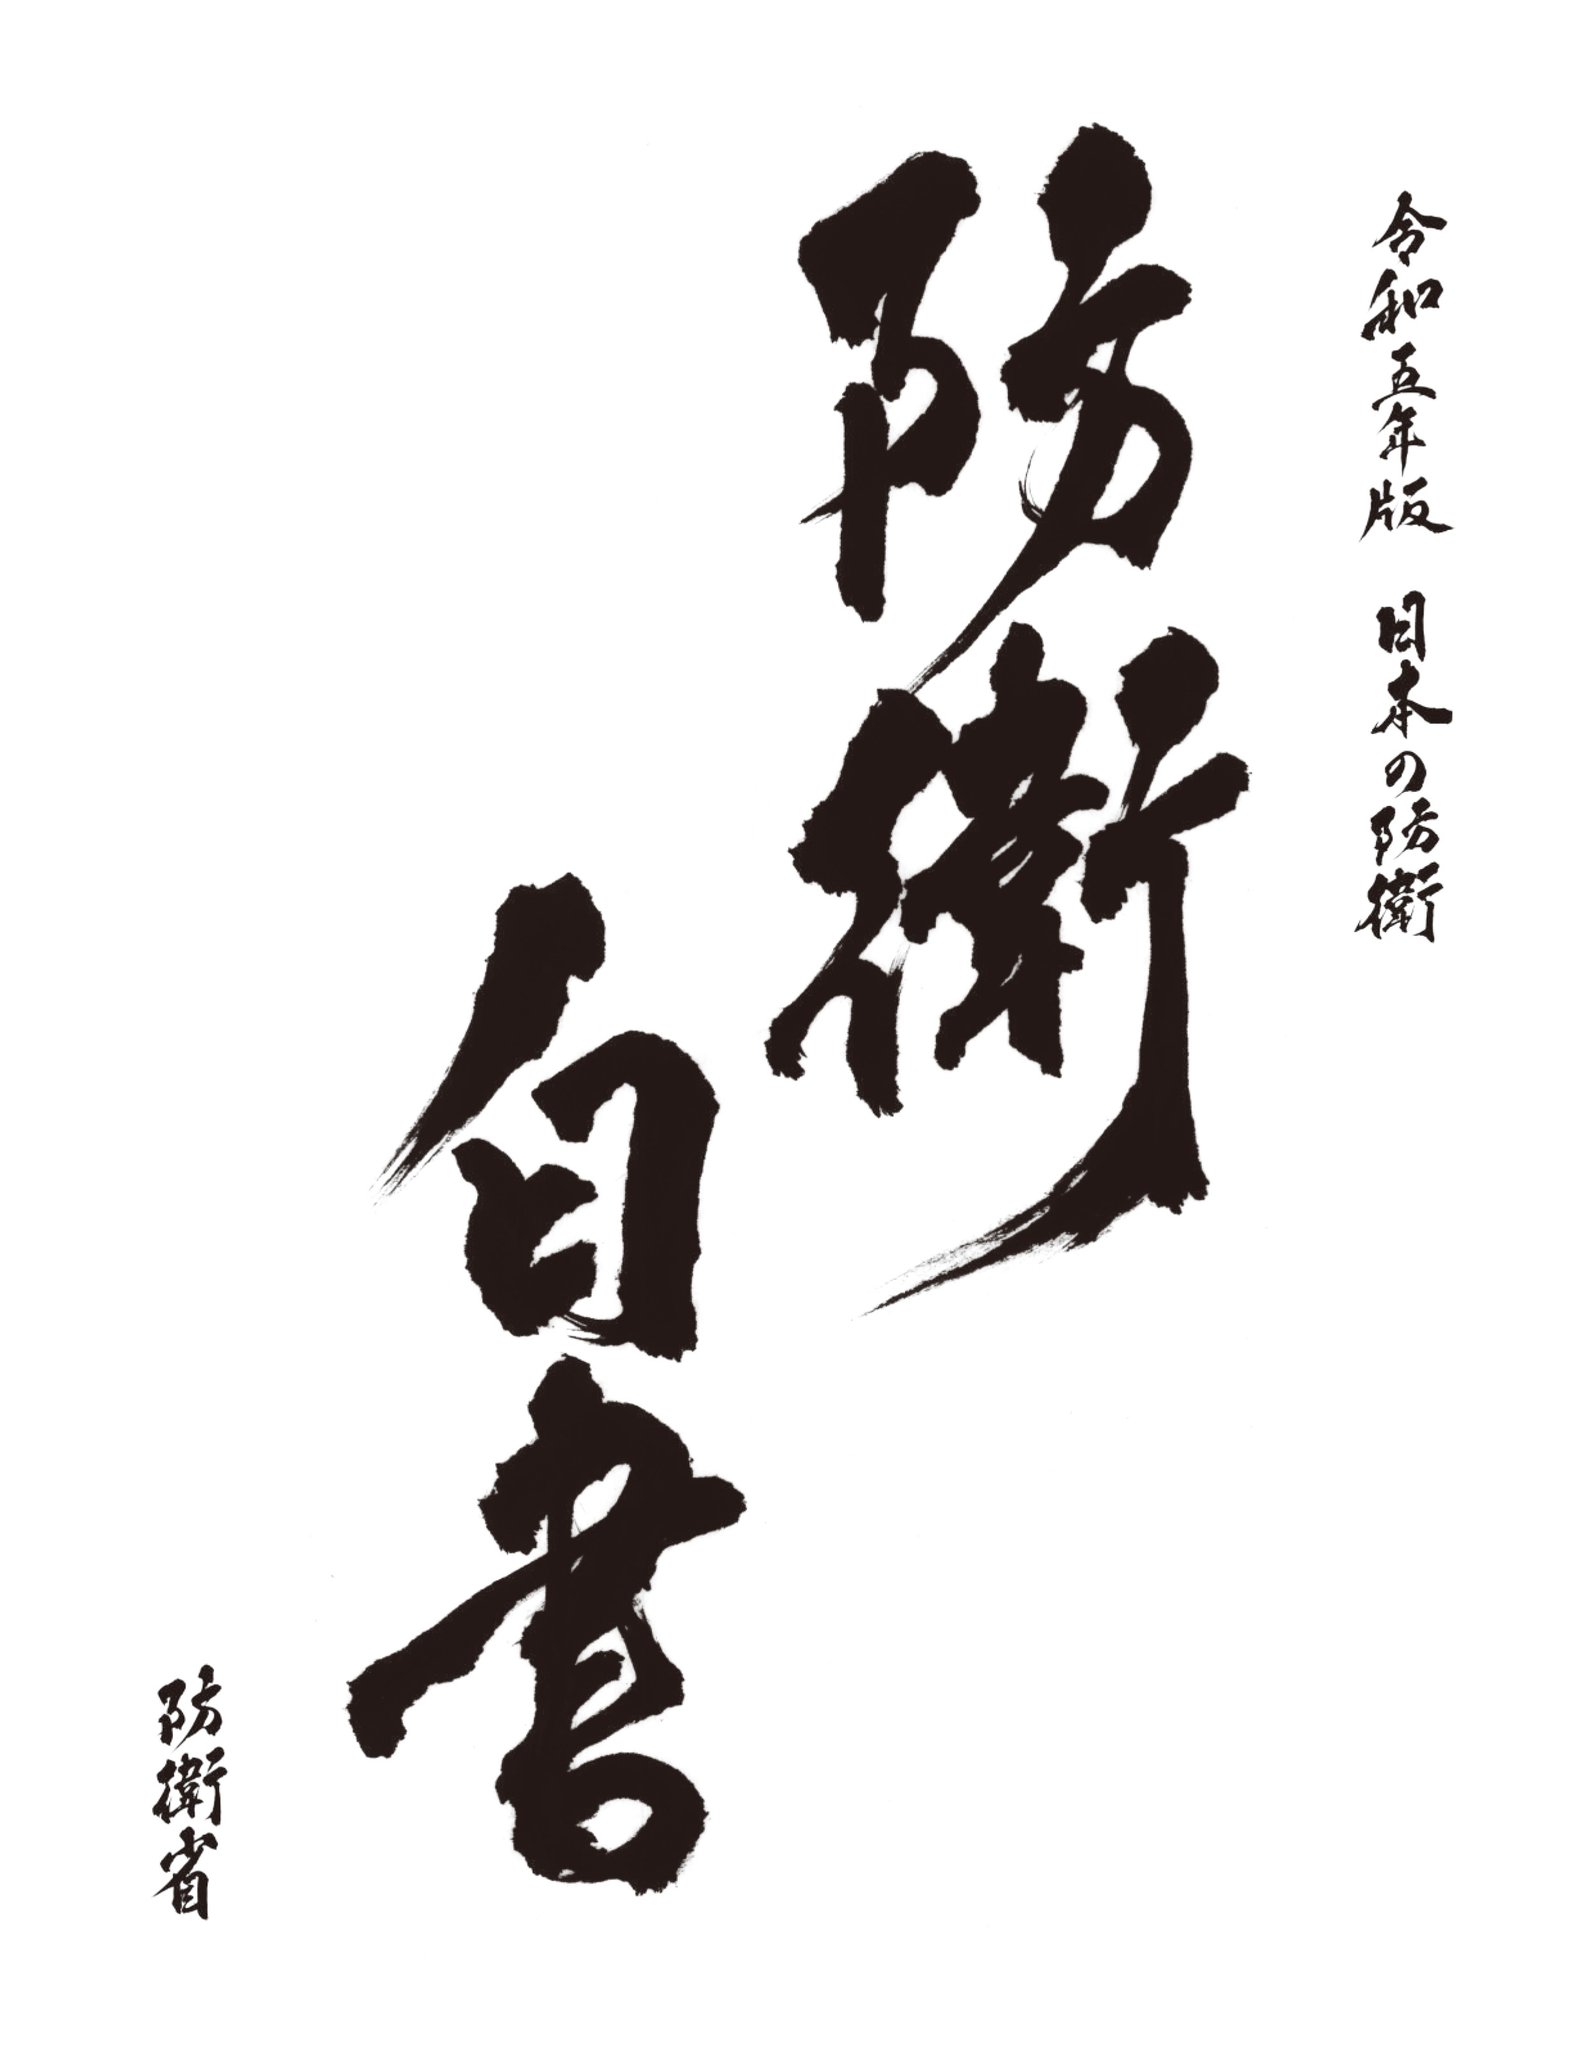 令和五年版　日本の防衛
防衛
白書
防衛省